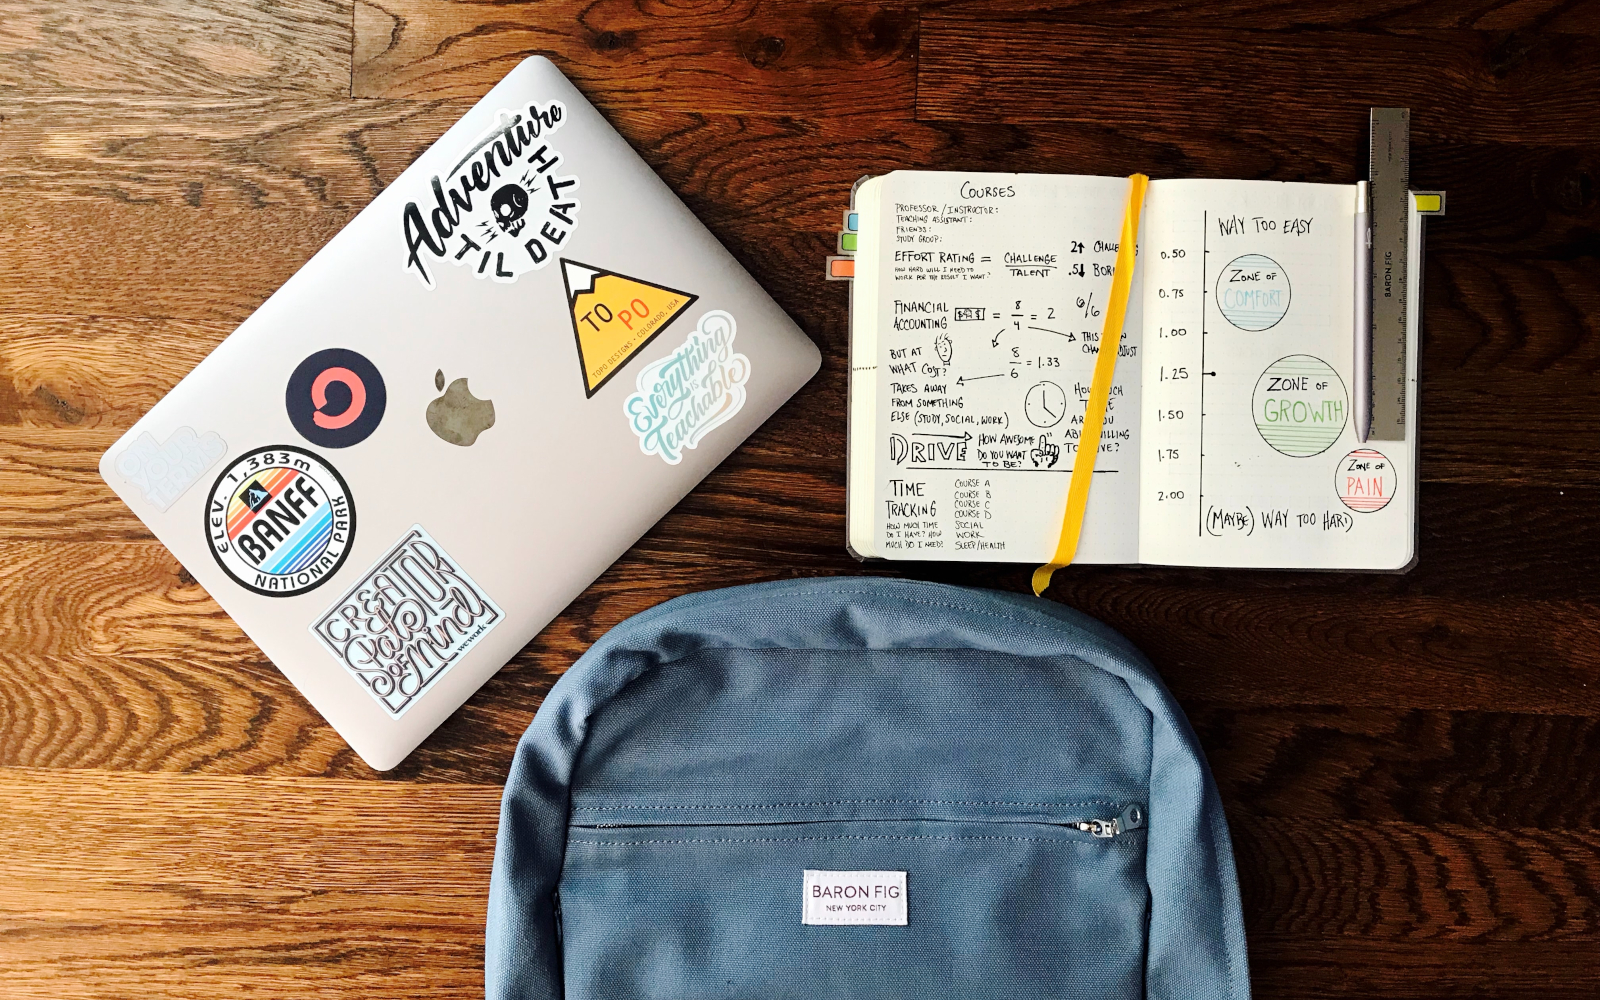 Adventure
'TIL DEATH
TO PO
TOPO DESIGNS • COLORADO, USA
Everything
is
Teachable
ELEV. 1,383m
BANFF
NATIONAL PARK
CREATOR
State
OF
Mind
wework
COURSES
PROFESSOR / INSTRUCTOR:
TEACHING ASSISTANT:
FRIENDS:
STUDY GROUP:
EFFORT RATING = CHALLENGE
TALENT
HOW HARD WILL I NEED TO
WORK FOR THE RESULT I WANT?
2↑
.5↓
FINANCIAL
ACCOUNTING
$ = 8/4 = 2
6/6
BUT AT
WHAT COST?
8/6 = 1.33
TAKES AWAY
FROM SOMETHING
ELSE (STUDY, SOCIAL, WORK)
DRIVE
HOW AWESOME
DO YOU WANT
TO BE?
TIME
TRACKING
HOW MUCH TIME
DO I HAVE? HOW
MUCH DO I NEED?
COURSE A
COURSE B
COURSE C
COURSE D
SOCIAL
WORK
SLEEP/HEALTH
WAY TOO EASY
0.50
0.75
1.00
1.25
1.50
1.75
2.00
ZONE OF
COMFORT
ZONE OF
GROWTH
ZONE OF
PAIN
(MAYBE) WAY TOO HARD
BARON FIG
BARON FIG
NEW YORK CITY